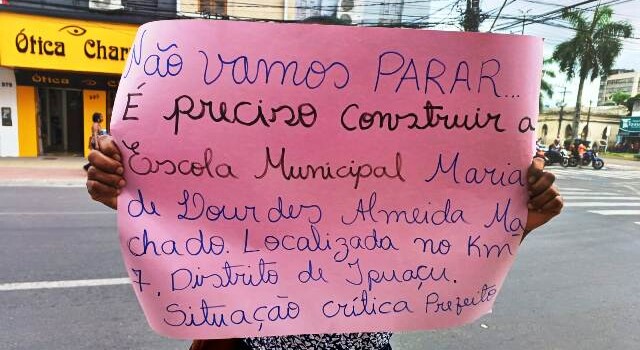 Ótica Char
Ótica Char
Não vamos PARAR...
É preciso construir a
Escola Municipal Maria
de Dourdes Almeida Ma
chado. Localizada no Km
7, Distrito de Ipuaçu.
Situação crítica Prefeito